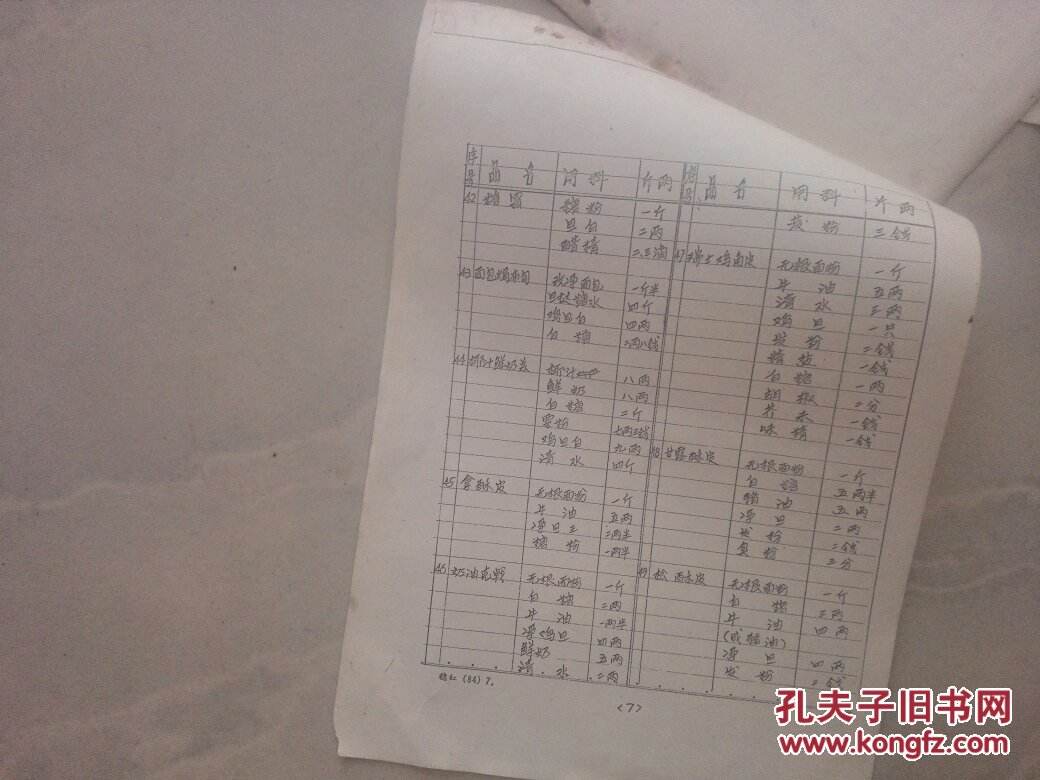 序号 品名 用料 斤两
42 糖 糖粉 一斤
旦白 二两
醋精 二、三滴
43 面包 一斤半
糖水 四斤
鸡旦白 四两
白糖 二两八钱
44 八两
鲜奶 八两
白糖 二斤
粟粉 七两三钱
鸡旦白 九两
清水 四斤
45 无根面粉 一斤
牛油 五两
净旦 二两半
糖粉 一两半
46 奶油 无根面粉 一斤
白糖 二两
牛油 一两半
净鸡旦 四两
鲜奶 五两
清水 二两
序号 品名 用料 斤两
发粉 三钱
47 无根面粉 一斤
牛油 五两
清水 三两
鸡旦 一只
发粉 二钱
精盐 一钱
白糖 一两
胡椒 二分
芥末 一钱
味精 一钱
48 无根面粉 一斤
白糖 五两半
猪油 五两
净旦 二两
发粉 二钱
食粉 三分
49 无根面粉 一斤
白糖 三两
牛油 四两
(或猪油)
净旦 四两
发粉 二钱
(84) 7.
<7>
孔夫子旧书网
www.kongfz.com